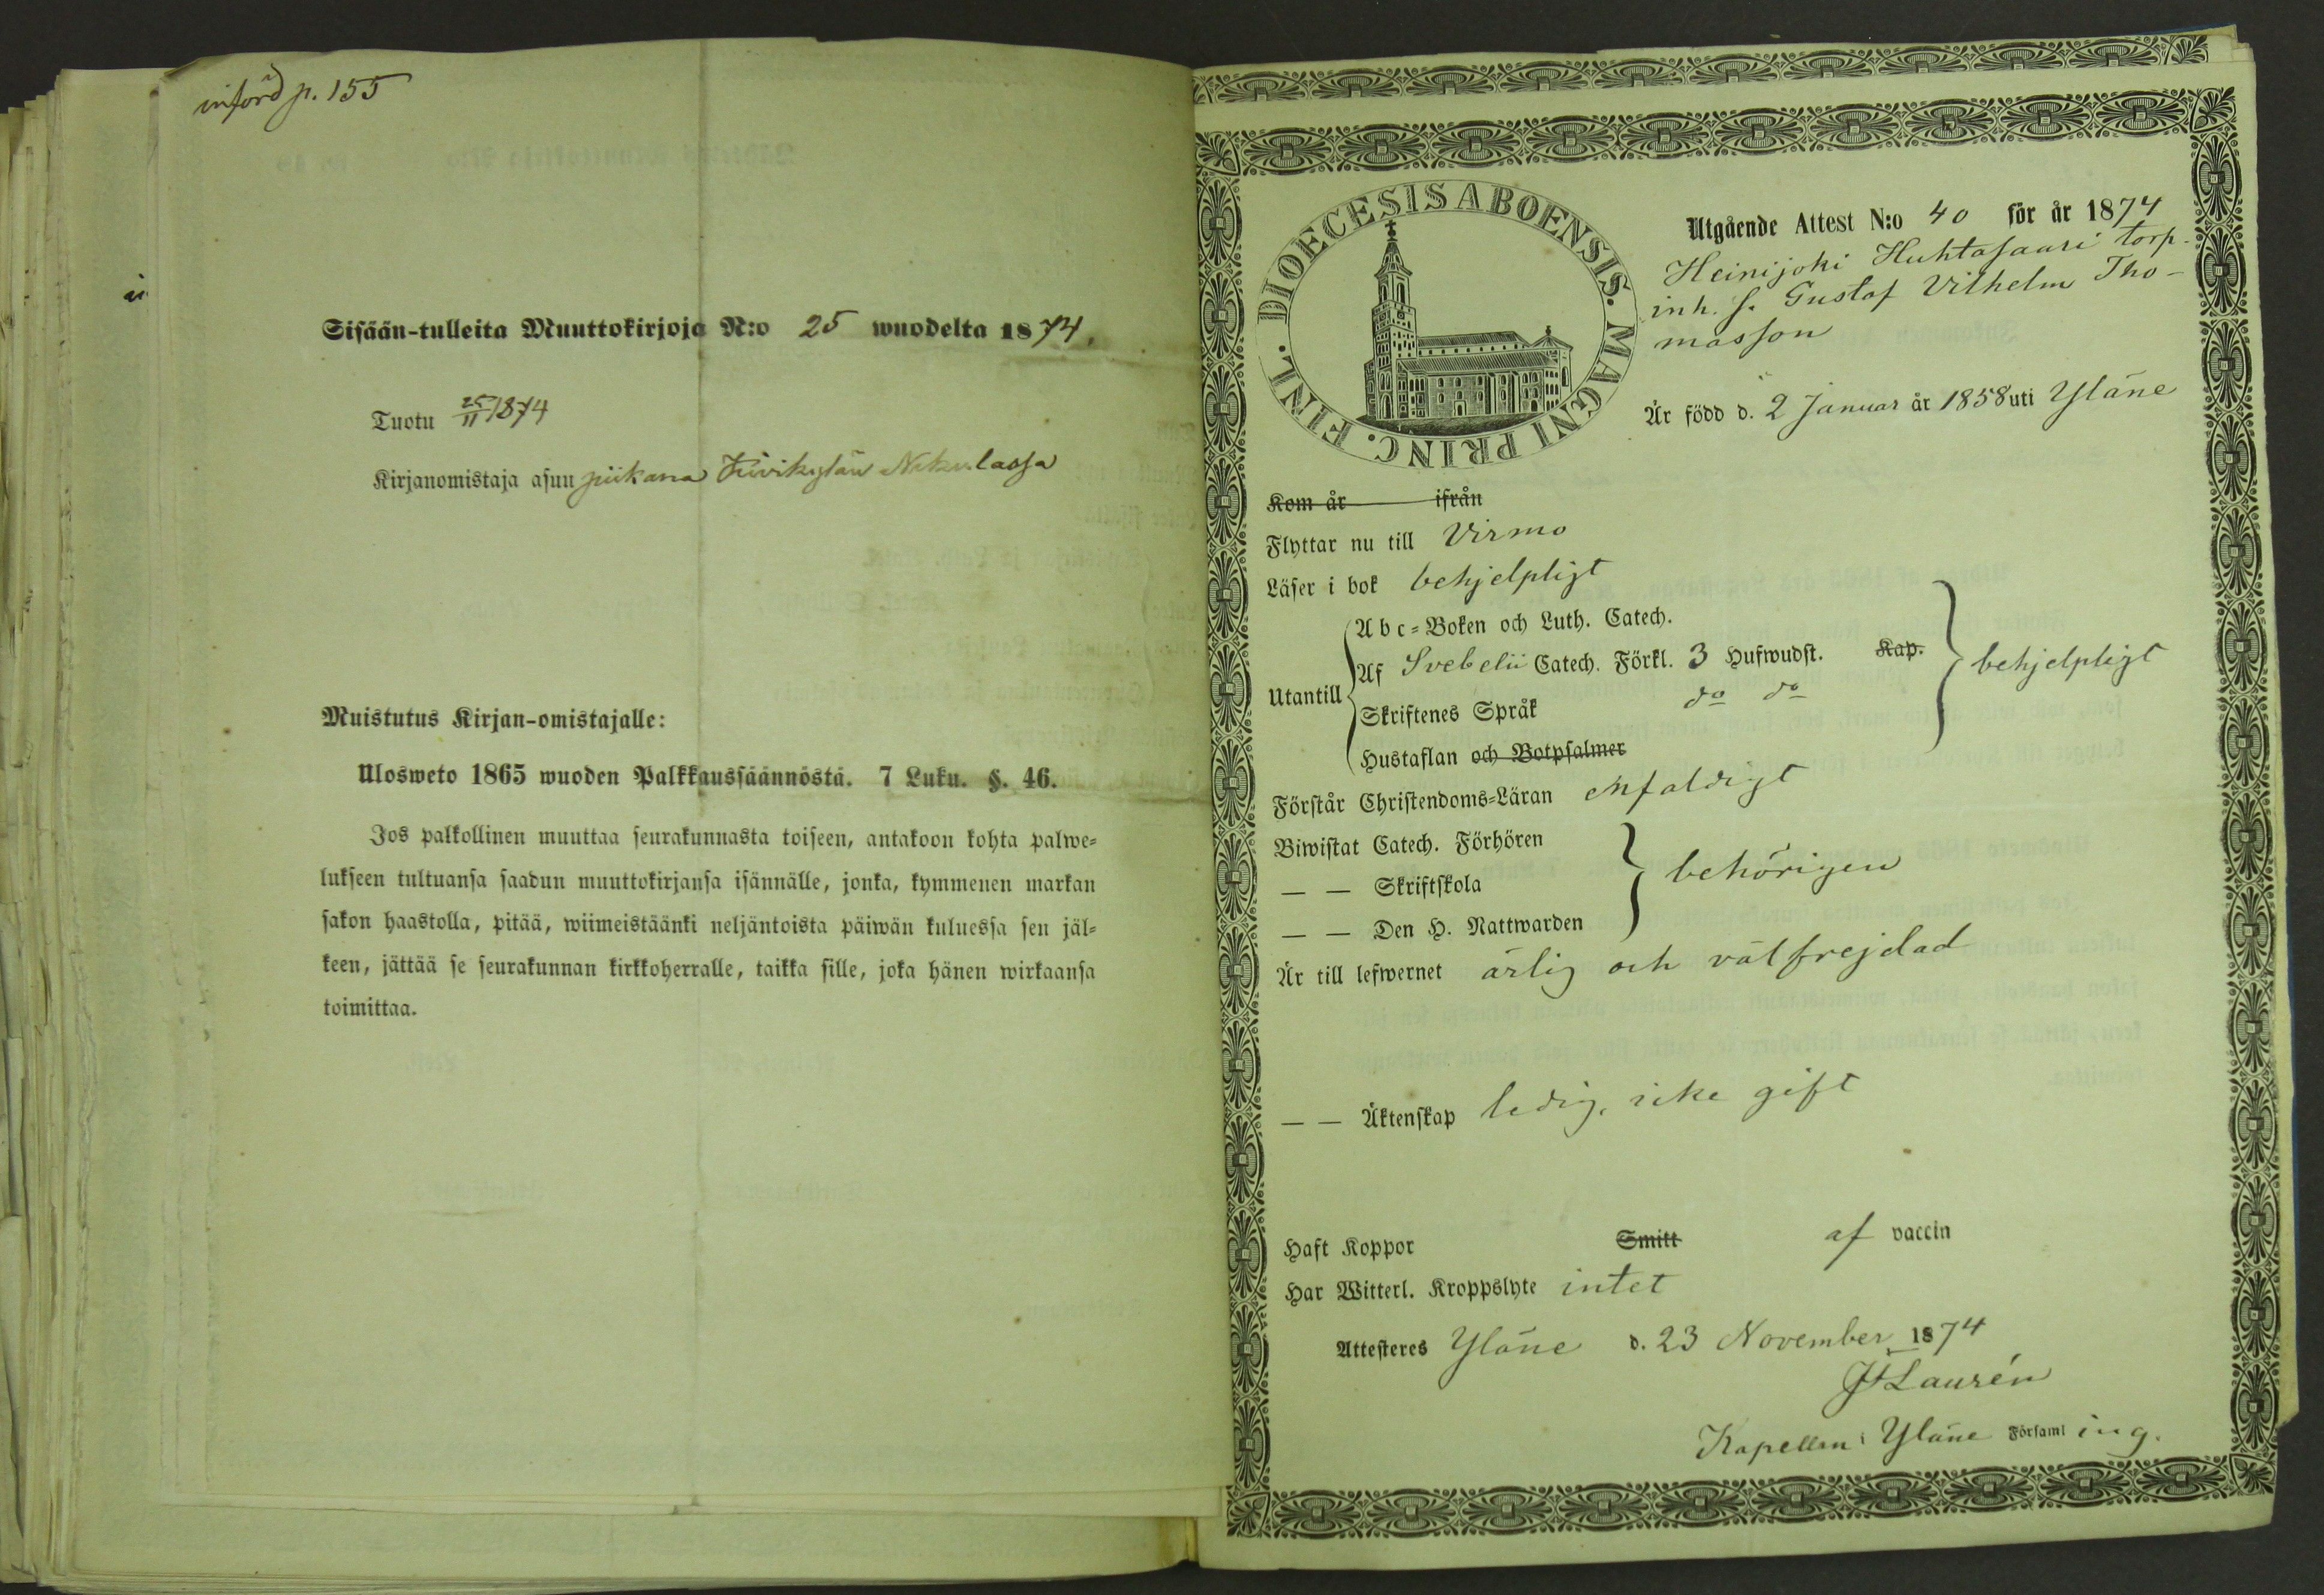 införd p. 155
Sisään-tulleita Muuttokirjoja N:o 25 wuodelta 1874.
Tuotu 25/11 1874
Kirjanomistaja asuu piikana Nikulassa
Muistutus Kirjan-omistajalle:
Ulosweto 1865 wuoden Palkkaussäännöstä. 7 Luku. §. 46.
Jos palkollinen muuttaa seurakunnasta toiseen, antakoon kohta palwe-
lukseen tultuansa saadun muuttokirjansa isännälle, jonka, kymmenen markan
sakon haastolla, pitää, wiimeistäänki neljäntoista päiwän kuluessa sen jäl-
keen, jättää se seurakunnan kirkkoherralle, taikka sille, joka hänen wirkaansa
toimittaa.
DIOECESIS ABOENSIS. MAGNI PRINC. FINL.
Utgående Attest N:o 40 för år 1874
Heinijoki Huhtasaari torp-
inh. s. Gustaf Vilhelm Tho-
masson
Är född d. 2 Januar år 1858 uti Yläne
Kom år ifrån
Flyttar nu till Virmo
Läser i bok behjelpligt
Utantill
Abc-Boken och Luth. Catech.
Af Svebelii Catech. Förkl. 3 Hufwudst. Kap.
Skriftenes Språk do do
Hustaflan och Botpsalmer
behjelpligt
Förstår Christendoms-Läran enfaldigt
Biwistat Catech. Förhören
— — Skriftskola
— — Den H. Nattwarden
behörigen
Är till lefwernet ärlig och välfrejdad
— — Äktenskap ledig, icke gift
Haft Koppor Smitt af vaccin
Har Witterl. Kroppslyte intet
Attesteres Yläne d. 23 November 1874
Laurén
Kapellan i Yläne Församl ing.